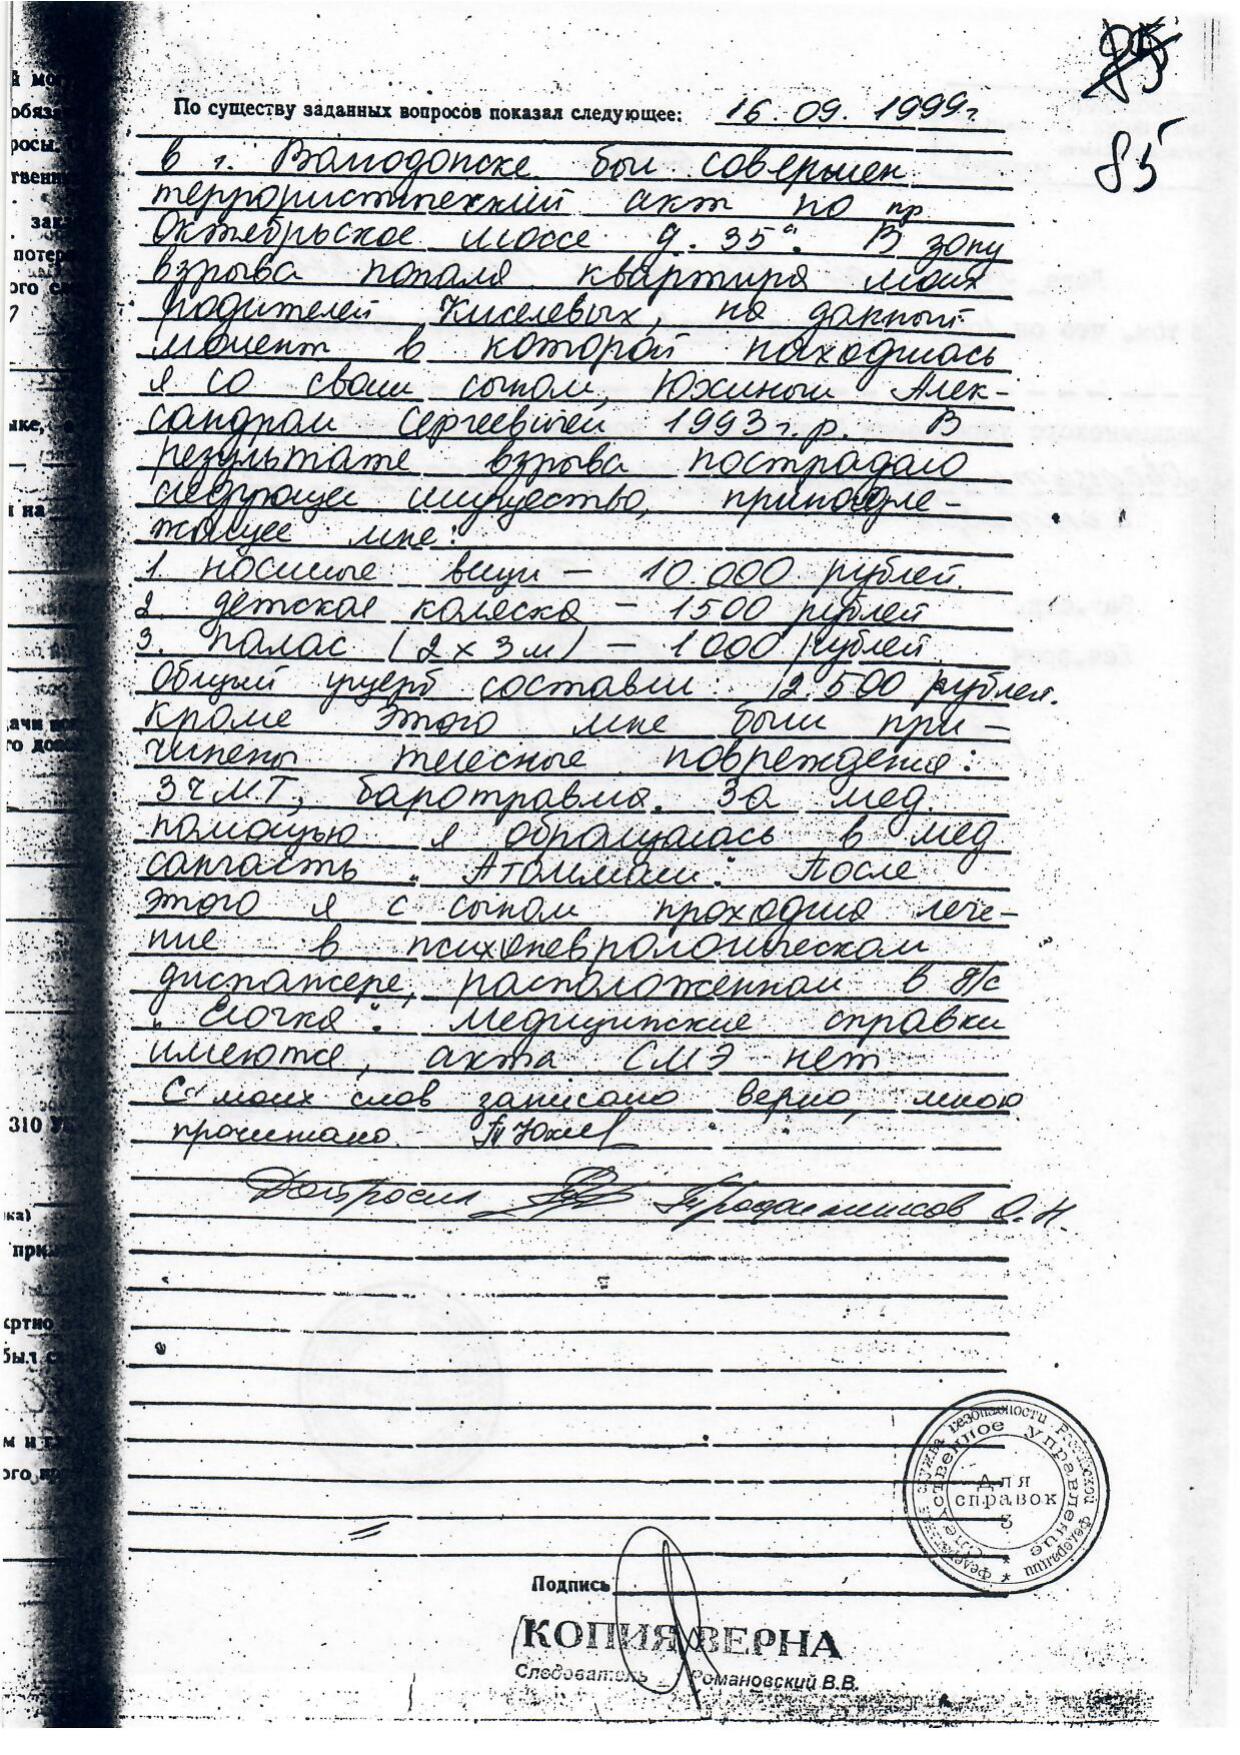 85
85
По существу заданных вопросов показал следующее: 16.09.1999г.
в г. Волгодонске был совершен
террористический акт по пр
Октябрьское шоссе д. 35". В зону
взрыва попала квартира моих
родителей Киселевых, на данный
момент в которой находилась
я со своим сыном, Юхиным Алек-
сандром Сергеевичем 1993 г.р. В
результате взрыва пострадало
следующее имущество, принадле-
жащее мне:
1. носимые вещи – 10.000 рублей.
2. детская коляска – 1500 рублей
3. палас (2 х 3 м) – 1000 рублей.
Общий ущерб составил 12.500 рублей.
Кроме этого мне были при-
чинены телесные повреждения:
ЗЧМТ, баротравма. За мед.
помощью я обращалась в мед
санчасть "Атоммаш". После
этого я с сыном проходила лече-
ние в психоневрологическом
диспансере, расположенном в д/с
"Елочка". Медицинские справки
имеются, акта СМЭ нет
С моих слов записано верно, мною
прочитано.
Допросил
О.Н.
310
был
Подпись
КОПИЯ ВЕРНА
Следователь Романовский В.В.
Федеральная служба безопасности Российской Федерации
Следственное управление
Для
справок
3